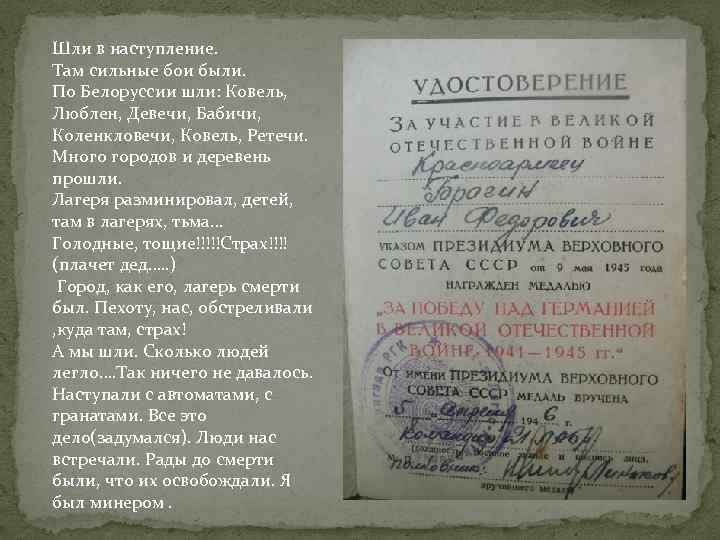 Шли в наступление.
Там сильные бои были.
По Белоруссии шли: Ковель,
Люблен, Девечи, Бабичи,
Коленкловечи, Ковель, Ретечи.
Много городов и деревень
прошли.
Лагеря разминировал, детей,
там в лагерях, тьма...
Голодные, тощие!!!!!Страх!!!!
(плачет дед.....)
Город, как его, лагерь смерти
был. Пехоту, нас, обстреливали
,куда там, страх!
А мы шли. Сколько людей
легло....Так ничего не давалось.
Наступали с автоматами, с
гранатами. Все это
дело(задумался). Люди нас
встречали. Рады до смерти
были, что их освобождали. Я
был минером .
УДОСТОВЕРЕНИЕ
ЗА УЧАСТИЕ В ВЕЛИКОЙ
ОТЕЧЕСТВЕННОЙ ВОЙНЕ
Красноармеец
Иван Федорович
УКАЗОМ ПРЕЗИДИУМА ВЕРХОВНОГО
СОВЕТА СССР от 9 мая 1945 года
НАГРАЖДЕН МЕДАЛЬЮ
„ЗА ПОБЕДУ НАД ГЕРМАНИЕЙ
В ВЕЛИКОЙ ОТЕЧЕСТВЕННОЙ
ВОЙНЕ 1941—1945 гг.“
ОТ ИМЕНИ ПРЕЗИДИУМА ВЕРХОВНОГО
СОВЕТА СССР МЕДАЛЬ ВРУЧЕНА
5 „ апреля 194 6 г.
Командир 21
М. П. звание и подпись лица,
полковник
вручившего медаль
РГК